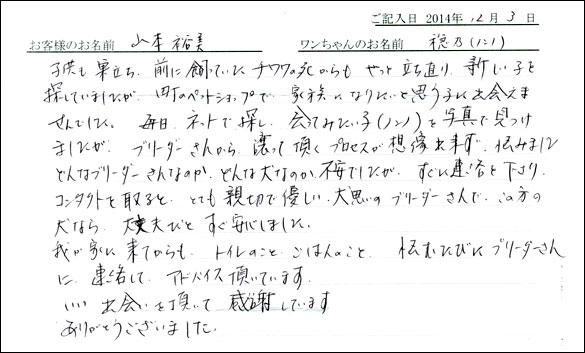 ご記入日 2014年 12月 3日
お客様のお名前 山本 裕美 ワンちゃんのお名前 穂乃(ノンノ)
子供も巣立ち、前に飼っていたチワワの死からも やっと立ち直り、新しい子を
探していましたが、町のペットショップで、家族になりたいと思う子に出会えま
せんでした。毎日、ネットで探し、会ってみたい子(ノンノ)を写真で見つけ
ましたが、ブリーダーさんから、譲って頂くプロセスが想像出来ず、悩みました
どんなブリーダーさんなのか、どんな犬なのか、不安でしたが、すぐに連絡を下さり、
コンタクトを取ると、とても親切で優しい、犬思いのブリーダーさんで、この方の
犬なら、大丈夫だと すぐ安心しました。
我が家に来てからも、トイレのこと、ごはんのこと、悩むたびにブリーダーさん
に、連絡して、アドバイス頂いています。
いい 出会いを頂いて 感謝しています
ありがとうございました。